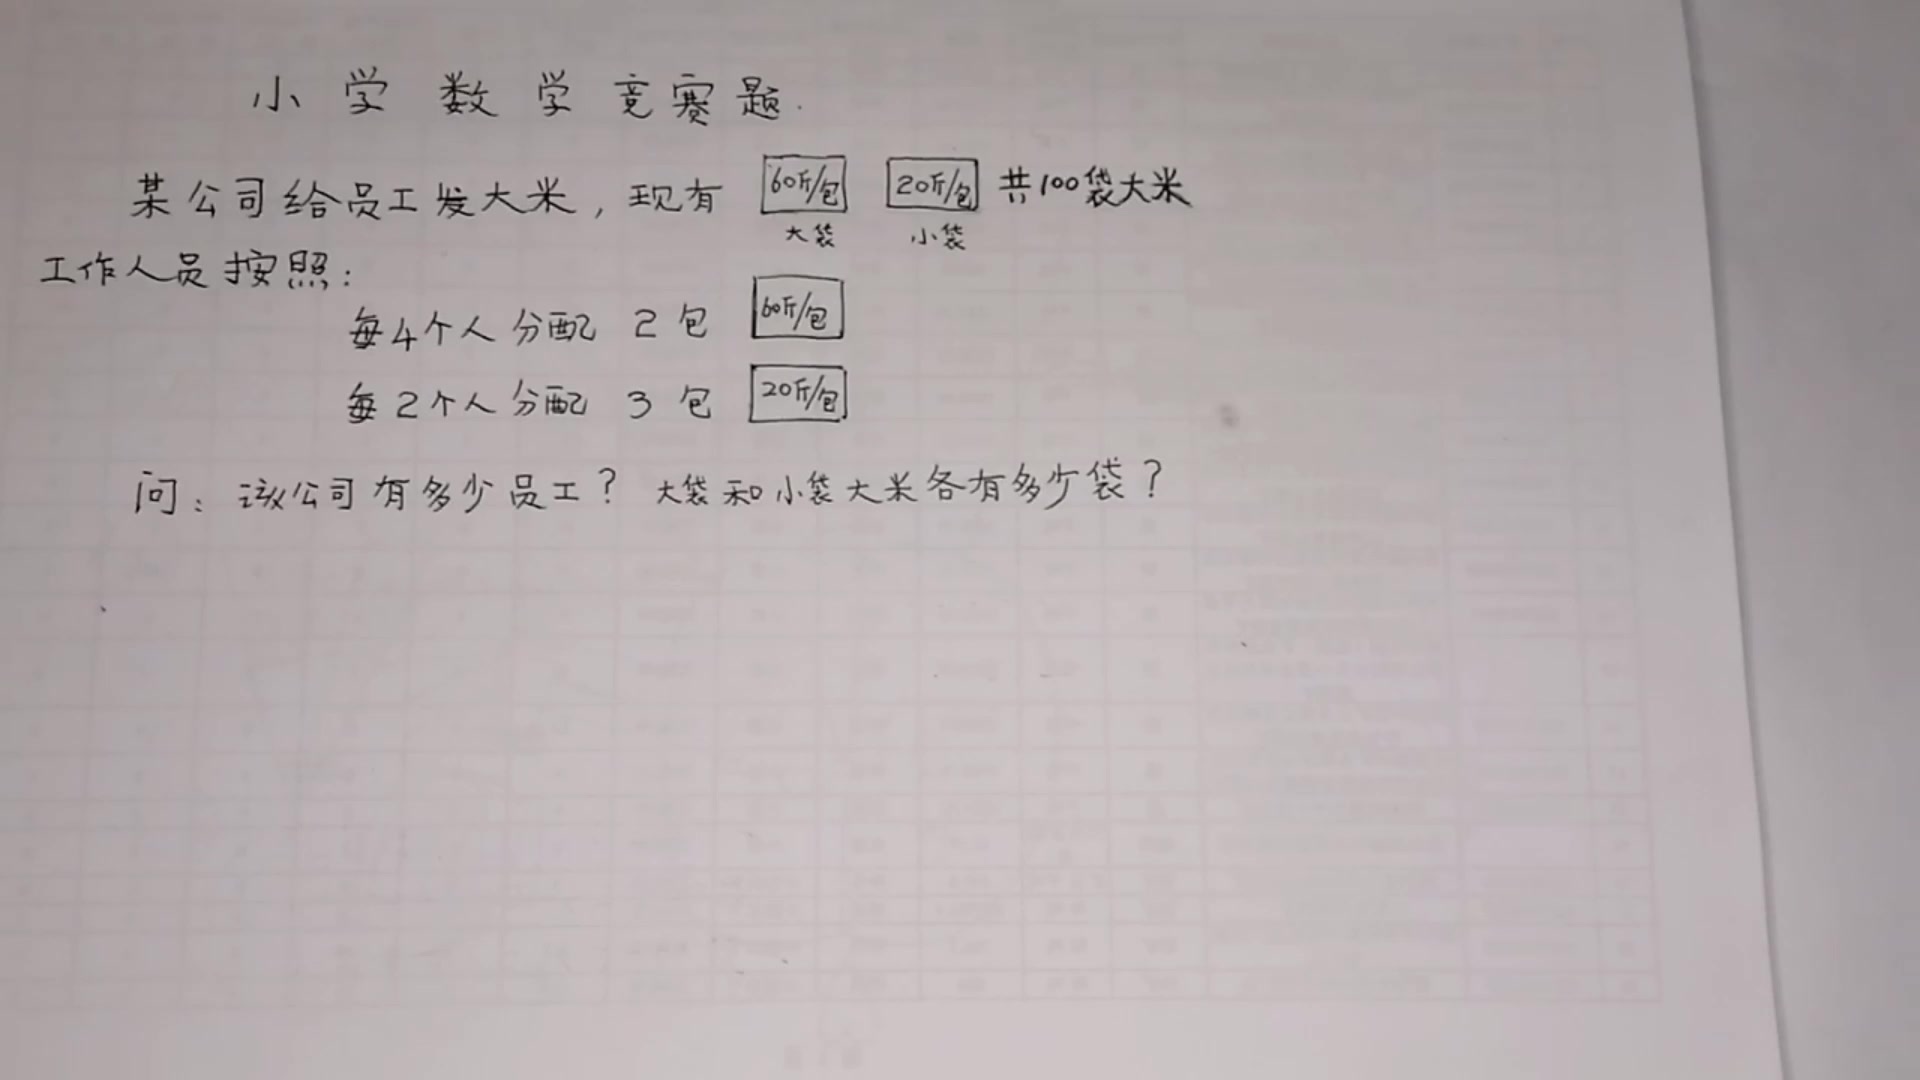 小学数学竞赛题.
某公司给员工发大米，现有 60斤/包 20斤/包 共100袋大米
大袋 小袋
工作人员按照：
每4个人分配 2包 60斤/包
每2个人分配 3包 20斤/包
问：该公司有多少员工？大袋和小袋大米各有多少袋？